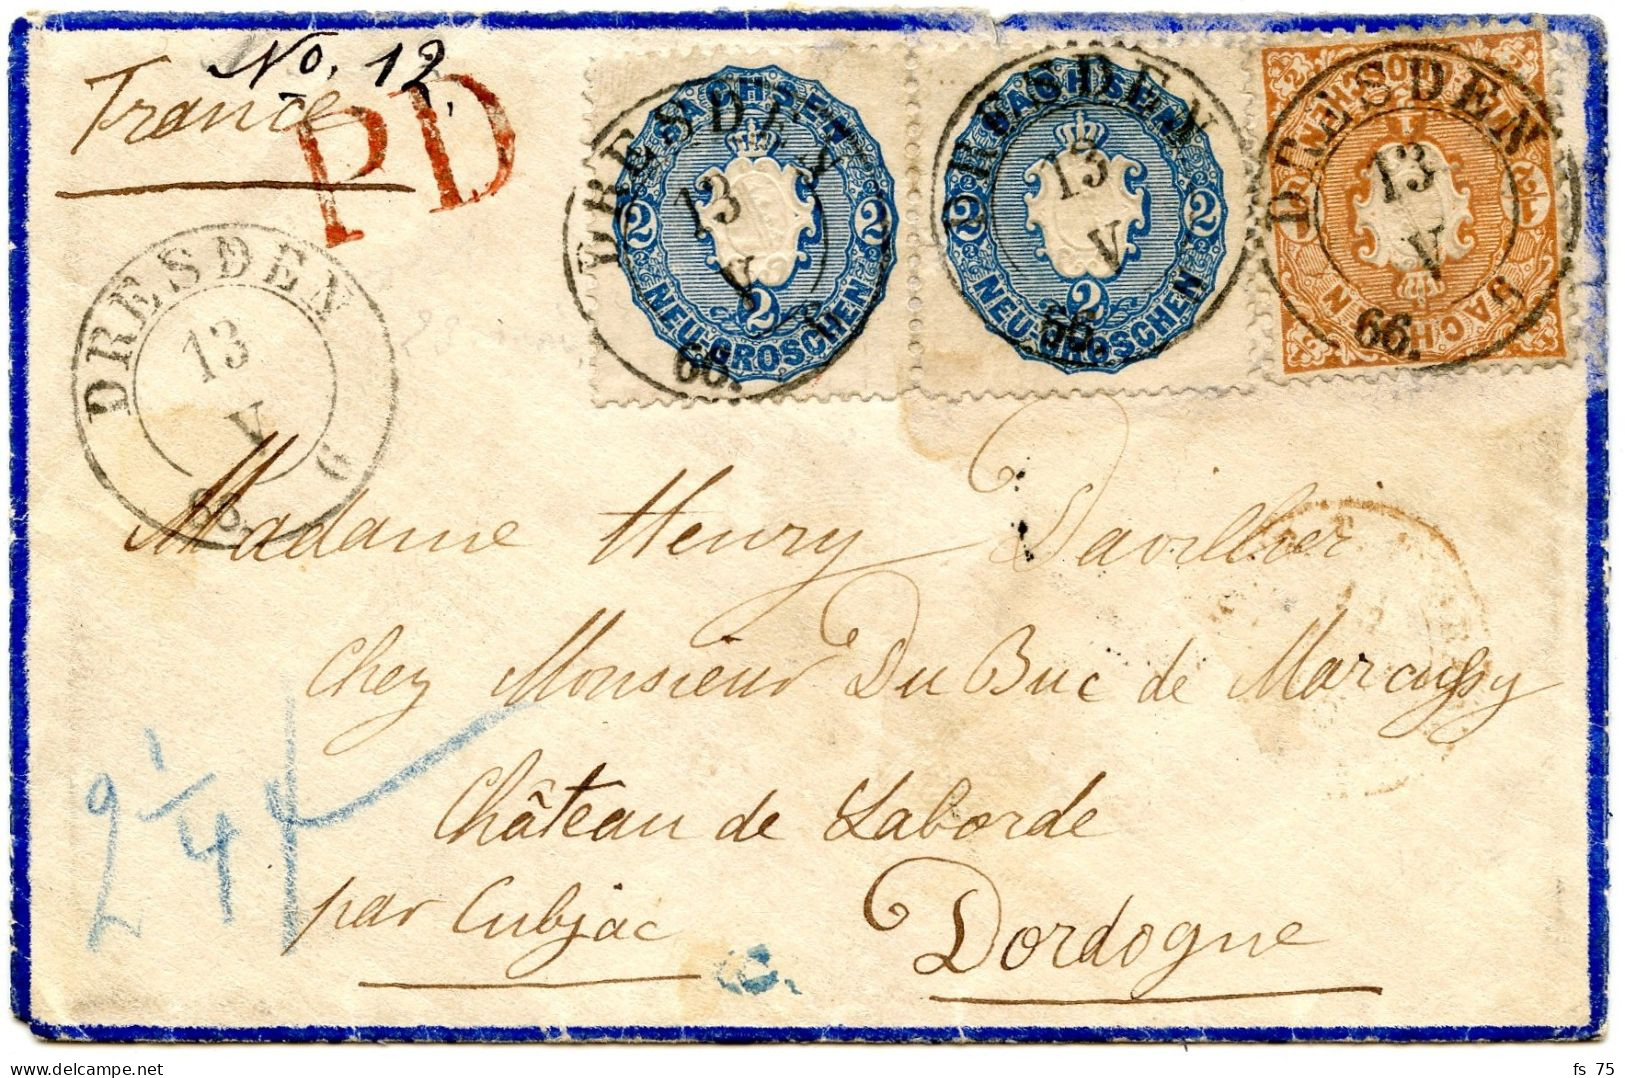 No. 12.
France
PD
DRESDEN
13
V
66.
6
SACHSEN
2 2
2
NEU-GROSCHEN
DRESDEN
13
V
66.
SACHSEN
2 2
2
NEU-GROSCHEN
DRESDEN
13
V
66.
DRESDEN
13
V
66.
6
Madame Henry Davillier
Chez Monsieur Du Buc de Marcussy
Château de Laborde
par Cubjac
Dordogne
2 1/4
delcampe.net
fs_75